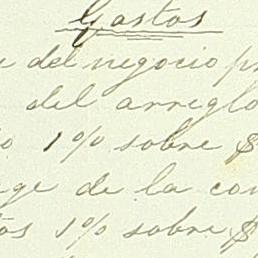 Gastos
del negocio
del arreglo
1% sobre $
de la con
1% sobre $